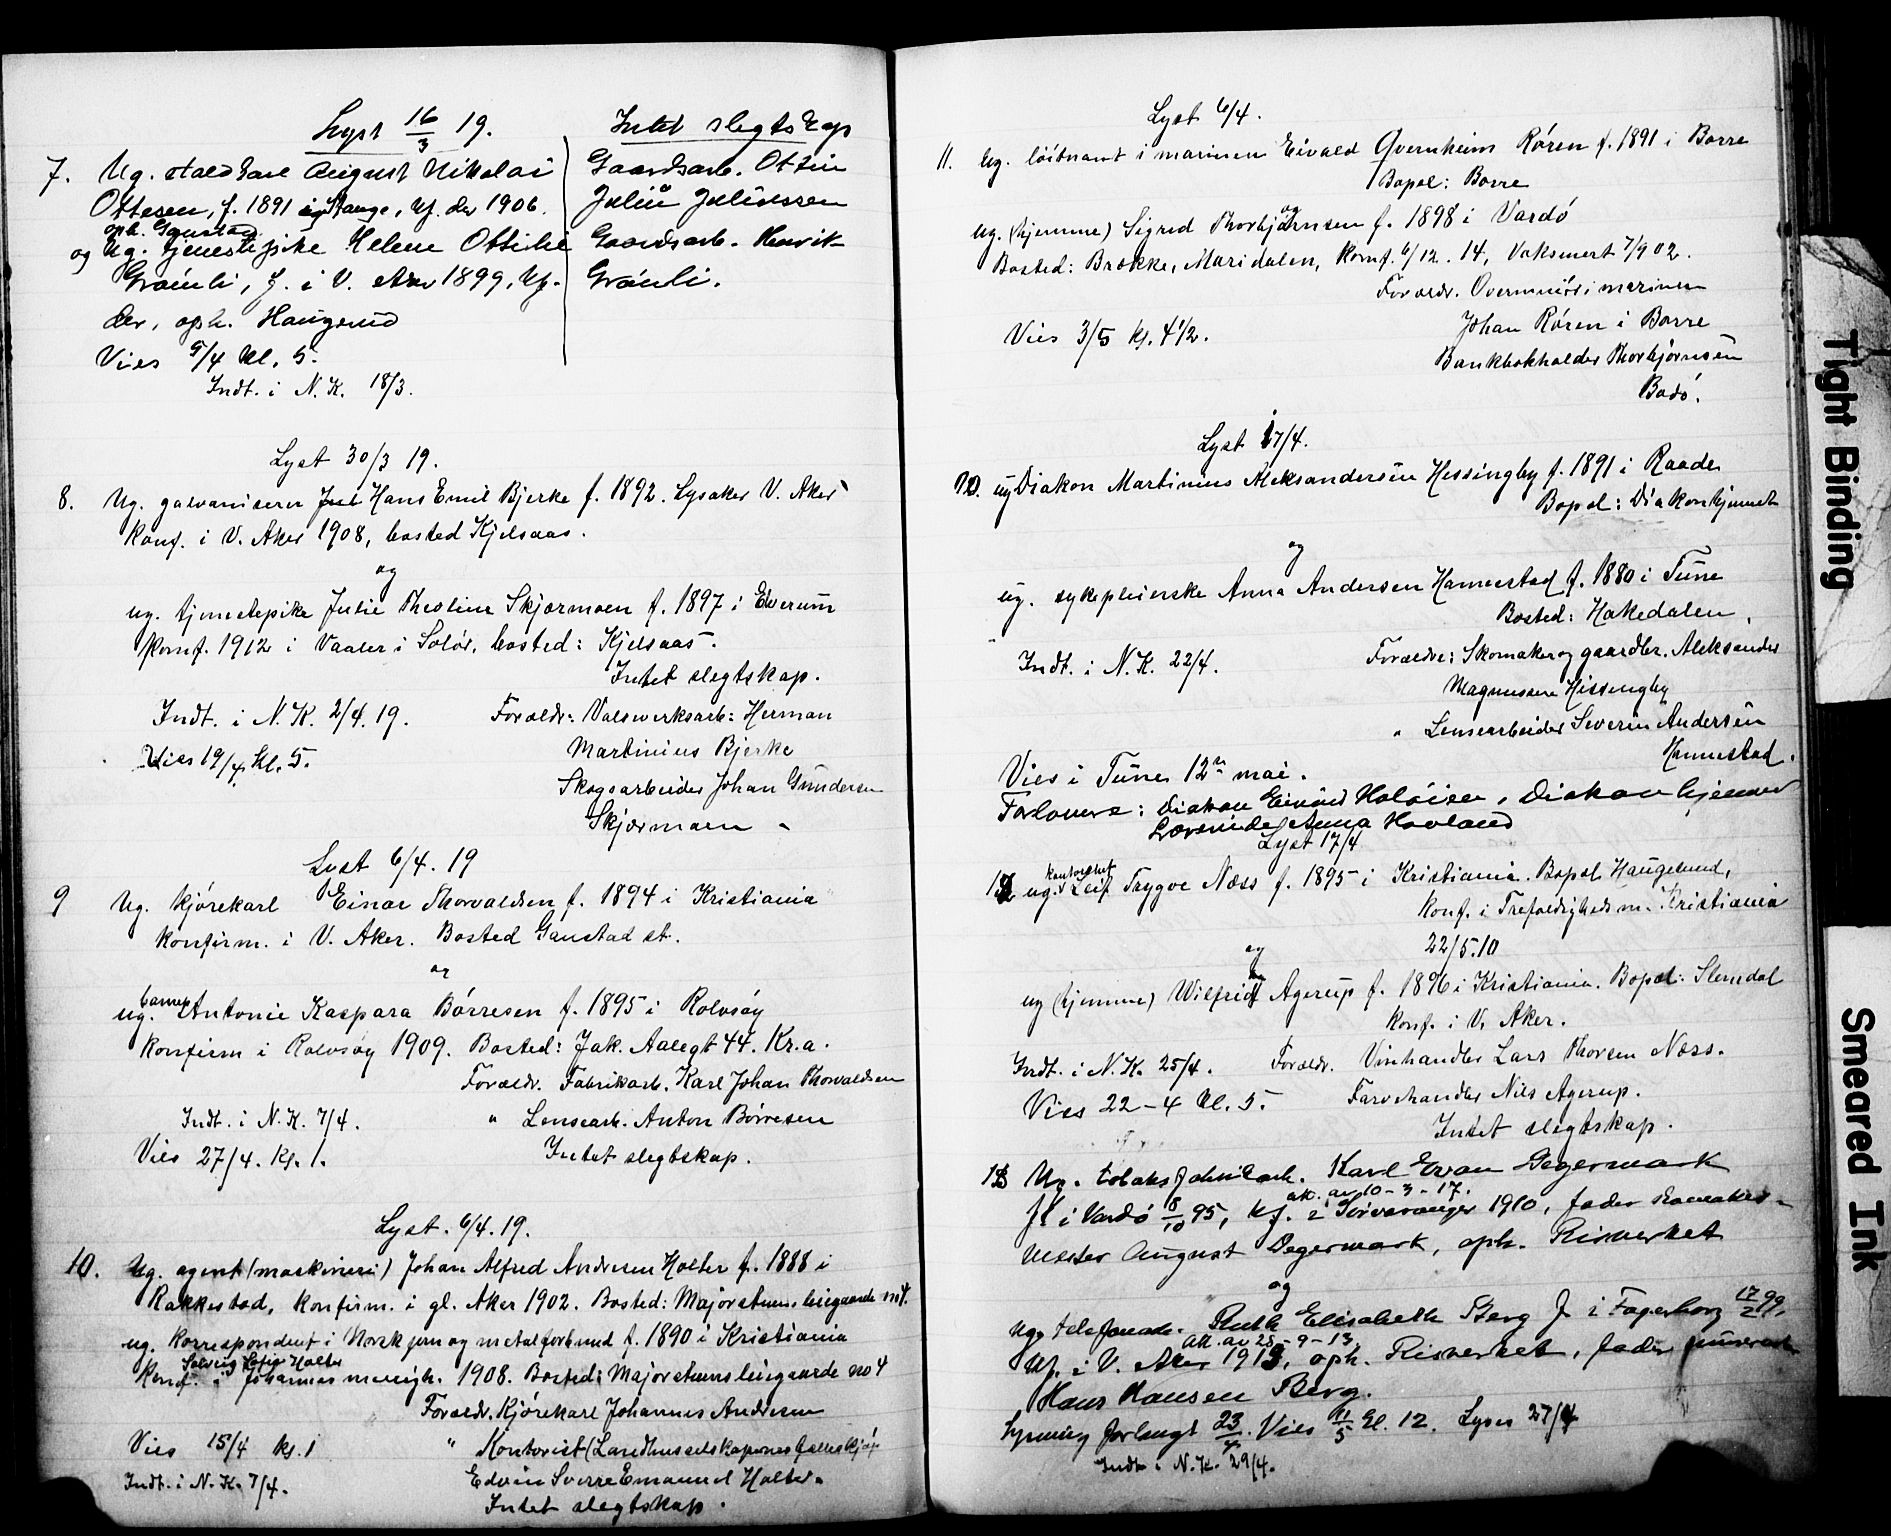 Lyst 16/3 19.
Intet slegtskap
7. Ug. staldkarl August Nikolai
Ottesen, f. 1891 i Stange, kf. der 1906.
oph. Gaustad
og Ug. tjenestepike Helene Ottilie
Grønli, f. i V. Aker 1899, kf.
der, oph. Haugerud
Vies 5/4 kl. 5.
Indt. i N. K. 18/3.
Gaardsarb. Ottin
Julius Juliussen
Gaardsarb. Henrik
Grønli.
Lyst 30/3 19.
8. Ug. galvaniserer Jul Hans Emil Bjerke f. 1892. Lysaker V. Aker
Konf. i V. Aker 1908, bosted Kjelsaas.
og
ug. tjenestepike Julie Theoline Skjærmoen f. 1897 i Elverum
Konf. 1912 i Vaaler i Solør, bosted: Kjelsaas.
Intet slegtskap.
Indt. i N. K. 2/4. 19. Forældr: Valsverksarb: Herman
Martinius Bjerke
Vies 19/4 kl. 5.
Skogsarbeider Johan Gundersen
Skjærmoen
Lyst 6/4. 19
9 Ug. kjørekarl Einar Thorvaldsen f. 1894 i Kristiania
konfirm. i V. Aker. Bosted Gaustad st.
og
ug. Antonie Kaspara Børresen f. 1895 i Rolvsøy
Konfirm i Rolvsøy 1909. Bosted: Jak. Aalsgt 44. Kr.a.
Forældr. Fabrikarb. Karl Johan Thorvaldsen
Indt. i N. K. 7/4. " Lensearb. Anton Børresen
Vies 27/4. Kl. 1. Intet slegtskap.
Lyst. 6/4. 19.
10. Ug. agent (maskineri) Johan Alfred Andresen Holter f. 1888 i
Rakkestad, Konfirm. i gl. Aker 1902. Bosted: Majorstuens leiegaarde no 4.
ug. Korrespondent i Norsk jern og metalforbund f. 1890 i Kristiania
Solveig Holter
Konf. i Johannes menigh. 1908. Bosted: Majorstuens leiegaarde no 4
Forældr. Kjørekarl Johannes Andresen
Vies 15/4 kl. 1 " Kontorist (Landhusselskapenes felleskjøp
Indt. i N. K. 7/4. Edvin Sverre Emanuel Holter.
Intet slegtskap.
Lyst 6/4.
11. Ug. løitnant i marinen Eivald Qvernheim Røren f. 1891 i Borre
Bopæl: Borre
og
ug. (hjemme) Sigrid Thorbjørnsen f. 1898 i Vardø
Bosted: Brække, Maridalen, Konf. 6/12. 14, Vaksinert 7/9 02.
Forældr. Overminør i marinen
Johan Røren i Borre
Vies 3/5 kl. 4 1/2.
Bankbokholder Thorbjørnsen
Bodø.
Lyst 17/4.
12. ug Diakon Martinius Aleksandersen Hissingby f. 1891 i Raade
Bopæl: Diakonhjemmet
og
ug. sykepleierske Anna Andersen Hannestad f. 1880 i Tune
Bosted: Hakedalen
Indt. i N. K. 22/4. Forældre: Skomaker og gaardbr. Aleksander
Magnussen Hissingby
" Lensearbeider Severin Andersen
Hannestad.
Vies i Tune 12te mai.
Forlovere: Diakon Eivind Haløisen, Diakonhjemmet
Lærerinde Anna Hovland
Lyst 17/4
12 ug. kontorchef Leif Trygve Næss f. 1895 i Kristiania. Bopæl Haugelund,
Konf. i Trefoldigheds m. Kristiania
22/5.10
og
ug (hjemme) Wilfrid Agerup f. 1896 i Kristiania. Bopæl: Slemdal
Konf. i V. Aker.
Indt. i N. K. 25/4. Forældr. Vinhandler Lars Thorsen Næss.
Vies 22-4 kl. 5. Farvehandler Nils Agerup.
Intet slegtskap.
13 Ug. tobaksfabrikarb. Karl Evan Degermark
att. av 10-3-17.
f. i Vardø 8/10 95, kf. i Sørvaranger 1910, fader skomaker-
mester August Degermark, oph. Risverket
og
Ug. telefonde. Ruth Elisabeth Berg f. i Fagerborg 17/2 99.
att. av 28-9-13,
kf. i V. Aker 1913, oph. Risverket, fader
Hans Hansen Berg.
Lysning forlangt 23/4. Vies 11/5 kl. 12. Lyses 27/4
Indt. i N. K. 29/4.
Tight Binding
Smeared Ink